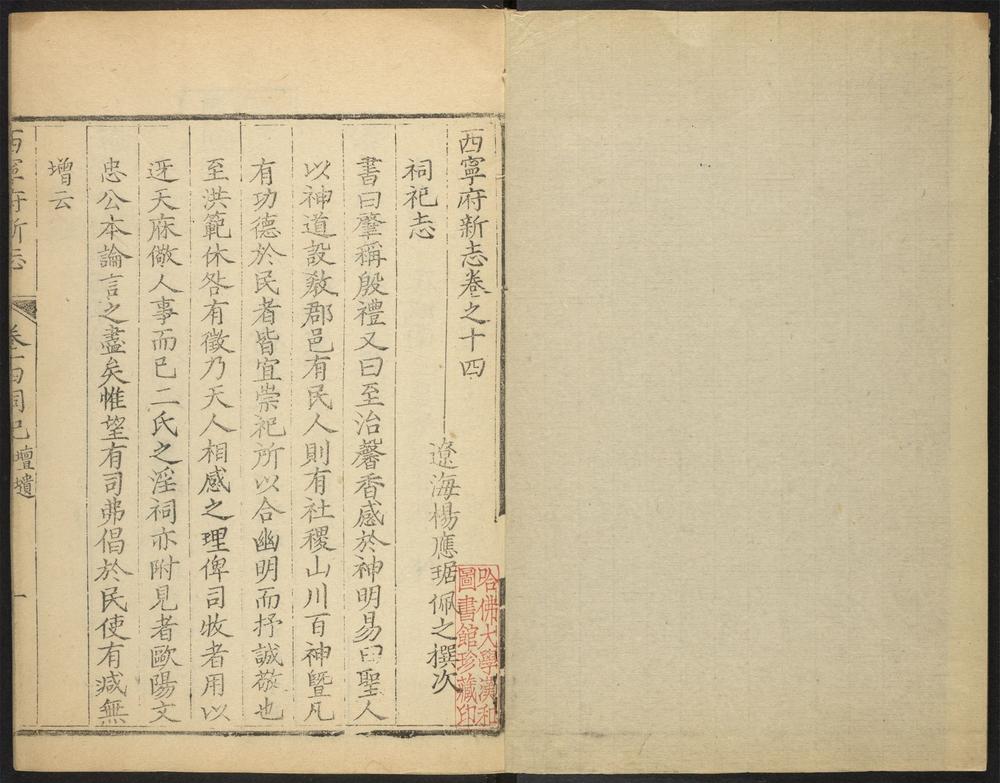 西寧府新志卷之十四
遼海楊應琚佩之撰次
祠祀志
書曰肇稱殷禮又曰至治馨香感於神明易曰聖人
以神道設敎郡邑有民人則有社稷山川百神曁凡
有功德於民者皆宜崇祀所以合幽明而抒誠敬也
至洪範休咎有徵乃天人相感之理俾司牧者用以
迓天庥儆人事而已二氏之淫祠亦附見者歐陽文
忠公本論言之盡矣惟望有司弗倡於民使有减無
增云
西寧府新志
卷十四祠祀 壇壝
一
哈佛大學漢和
圖書館珍藏印